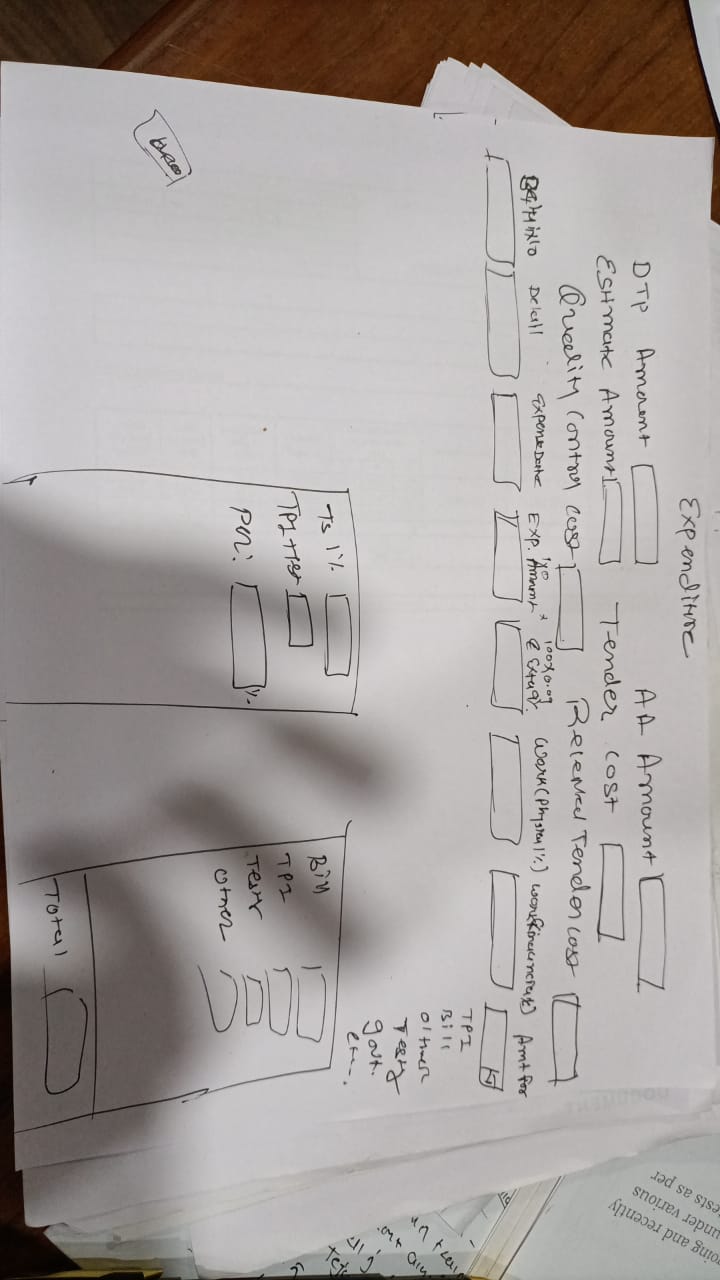 Expenditure
DTP Amount
AA Amount
Estimate Amount
Tender cost
Quality Control cost
Received Tender cost
Detail
Expense Date
Exp. Amount
100x0.09
Work (Physical %)
Amt for
TPI
Bill
Other
Testing
govt.
etc..
Ts 1%
TPI + Test
Per: %
Bill
TPI
Testing
Other
Total
oing and recently
under various
ests as per